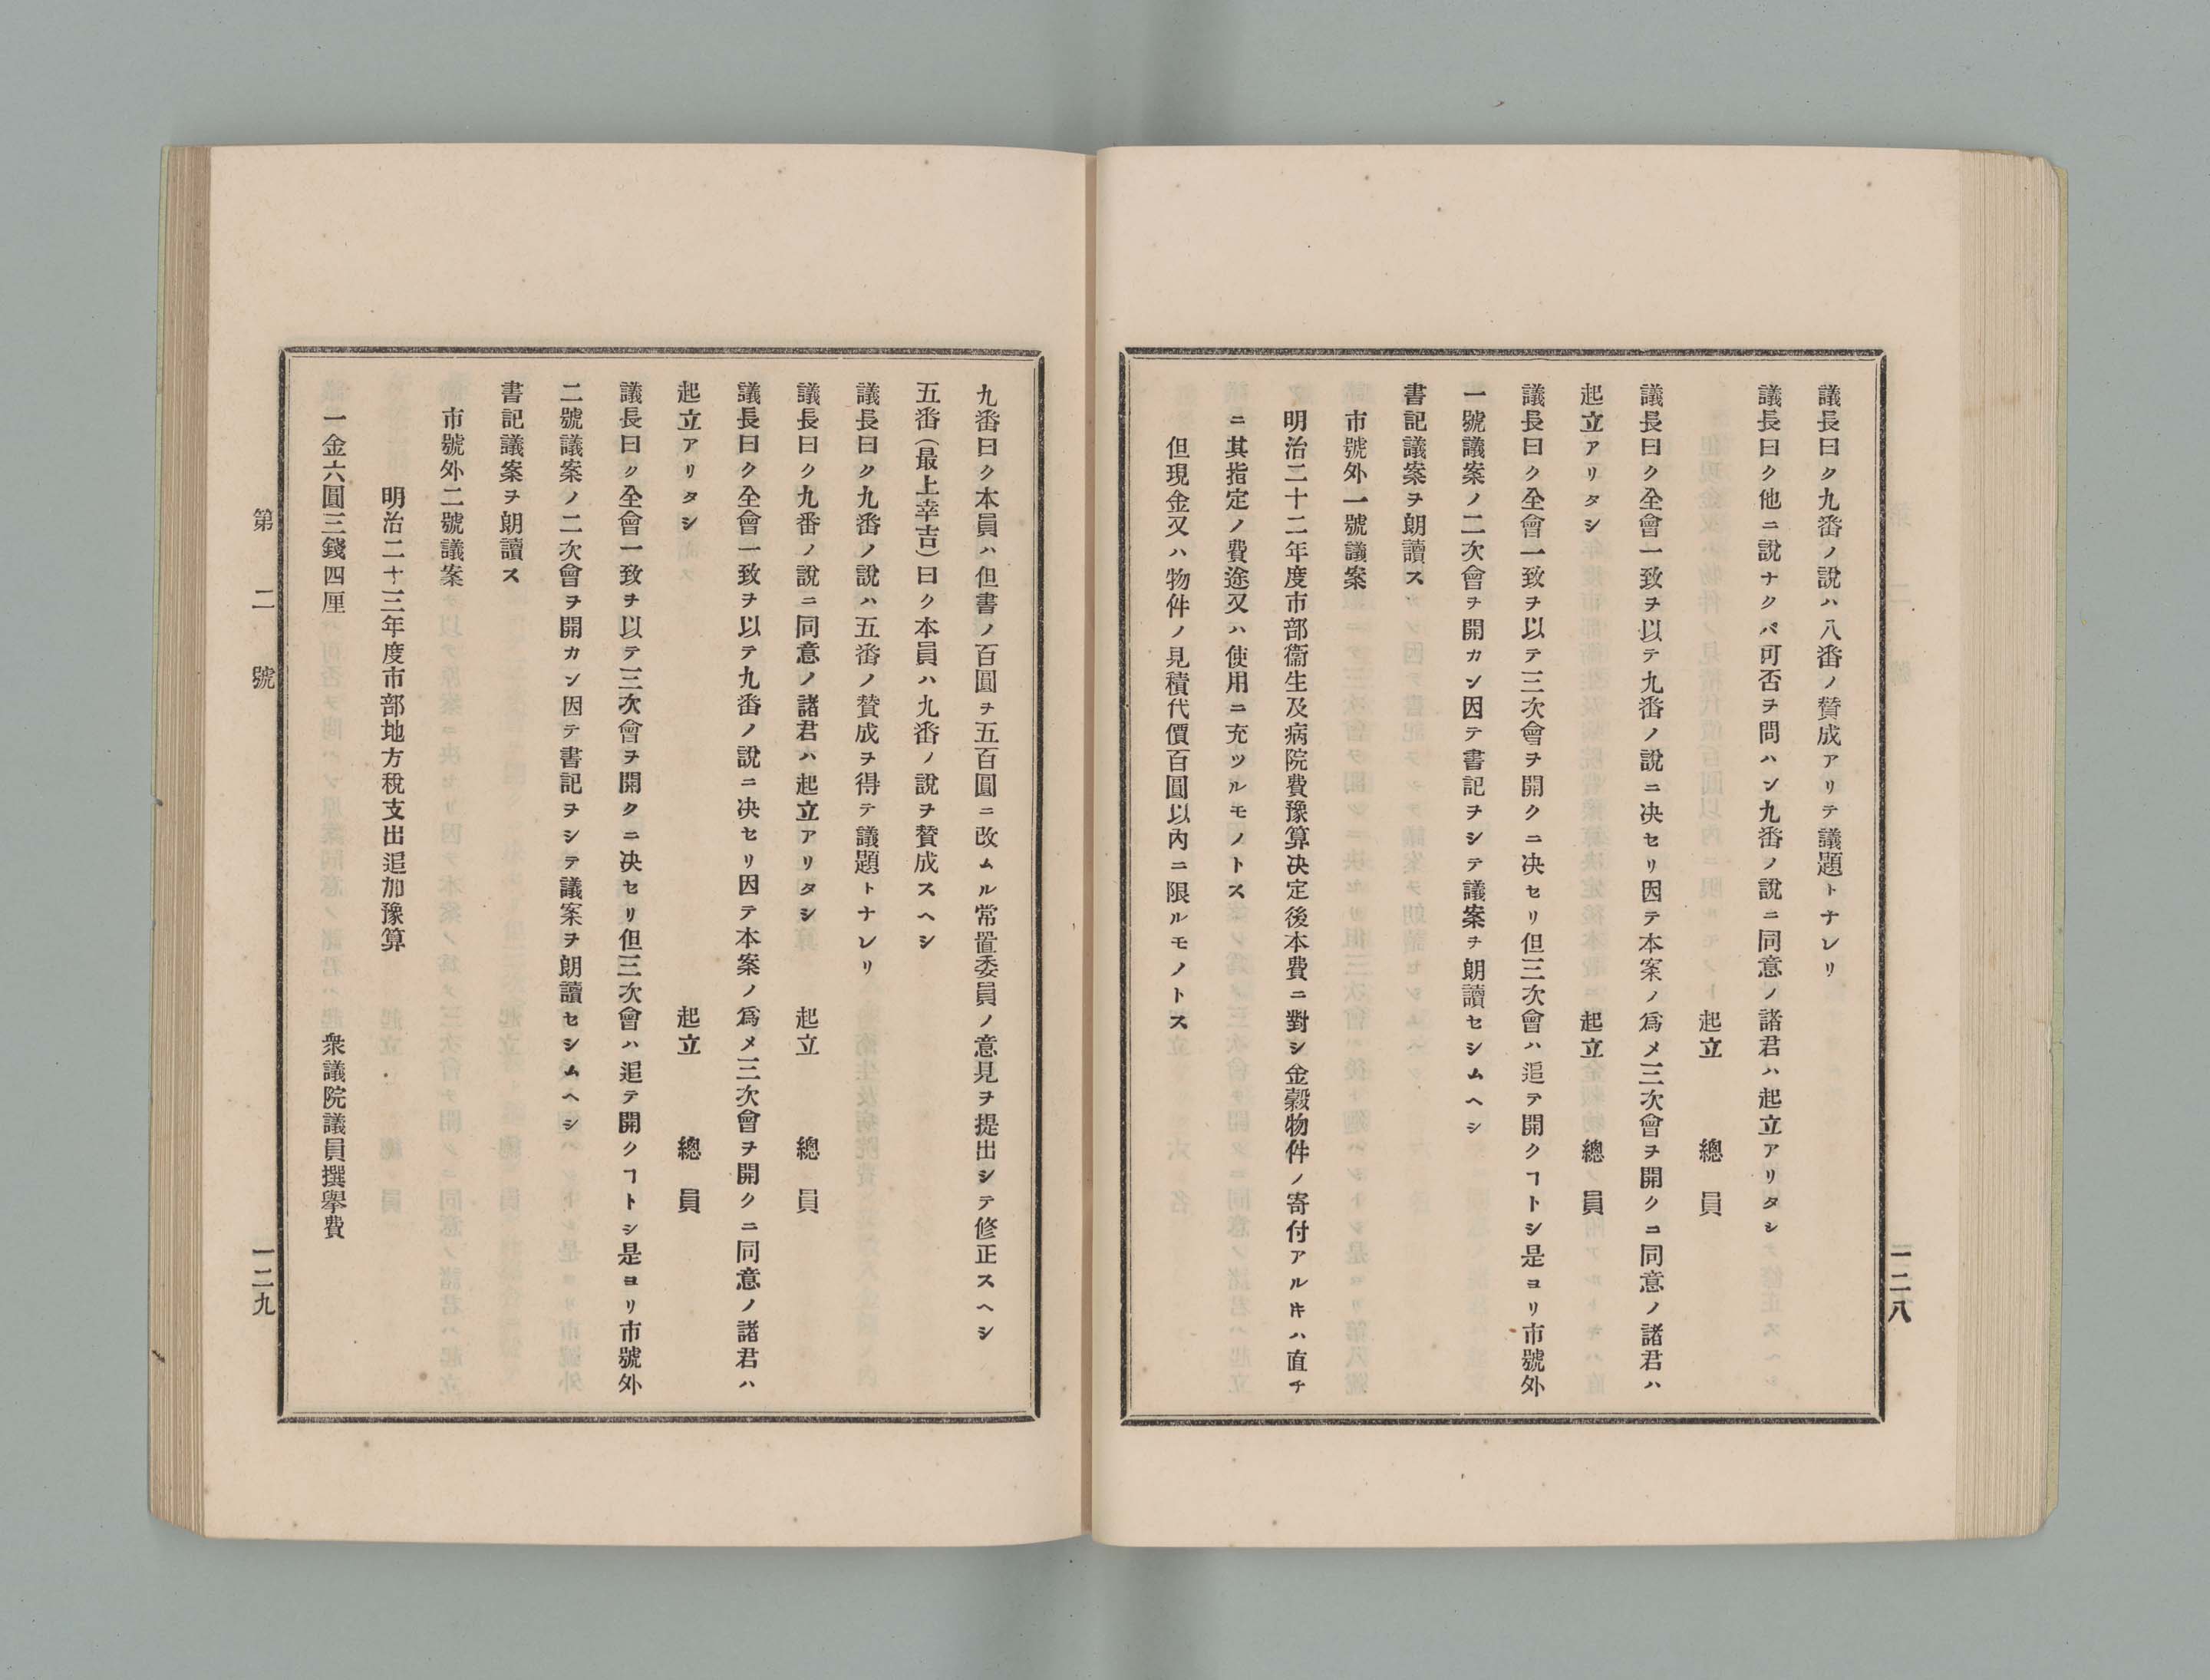 議長曰ク九番ノ說ハ八番ノ賛成アリテ議題トナレリ
議長曰ク他ニ說ナクバ可否ヲ問ハン九番ノ說ニ同意ノ諸君ハ起立アリタシ
起立 總員
議長曰ク全會一致ヲ以テ九番ノ說ニ決セリ因テ本案ノ爲メ三次會ヲ開クニ同意ノ諸君ハ
起立アリタシ 起立 總員
議長曰ク全會一致ヲ以テ三次會ヲ開クニ決セリ但三次會ハ追テ開クヿトシ是ヨリ市號外
一號議案ノ二次會ヲ開カン因テ書記ヲシテ議案ヲ朗讀セシムヘシ
書記議案ヲ朗讀ス
市號外一號議案
明治二十二年度市部衞生及病院費豫算決定後本費ニ對シ金穀物件ノ寄付アルキハ直チ
ニ其指定ノ費途又ハ使用ニ充ツルモノトス
但現金又ハ物件ノ見積代價百圓以內ニ限ルモノトス
一二八
九番曰ク本員ハ但書ノ百圓ヲ五百圓ニ改ムル常置委員ノ意見ヲ提出シテ修正スヘシ
五番(最上幸吉)曰ク本員ハ九番ノ說ヲ賛成スヘシ
議長曰ク九番ノ說ハ五番ノ賛成ヲ得テ議題トナレリ
議長曰ク九番ノ說ニ同意ノ諸君ハ起立アリタシ 起立 總員
議長曰ク全會一致ヲ以テ九番ノ說ニ決セリ因テ本案ノ爲メ三次會ヲ開クニ同意ノ諸君ハ
起立アリタシ 起立 總員
議長曰ク全會一致ヲ以テ三次會ヲ開クニ決セリ但三次會ハ追テ開クヿトシ是ヨリ市號外
二號議案ノ二次會ヲ開カン因テ書記ヲシテ議案ヲ朗讀セシムヘシ
書記議案ヲ朗讀ス
市號外二號議案
明治二十三年度市部地方稅支出追加豫算
一金六圓三錢四厘 衆議院議員撰擧費
第二號 一二九